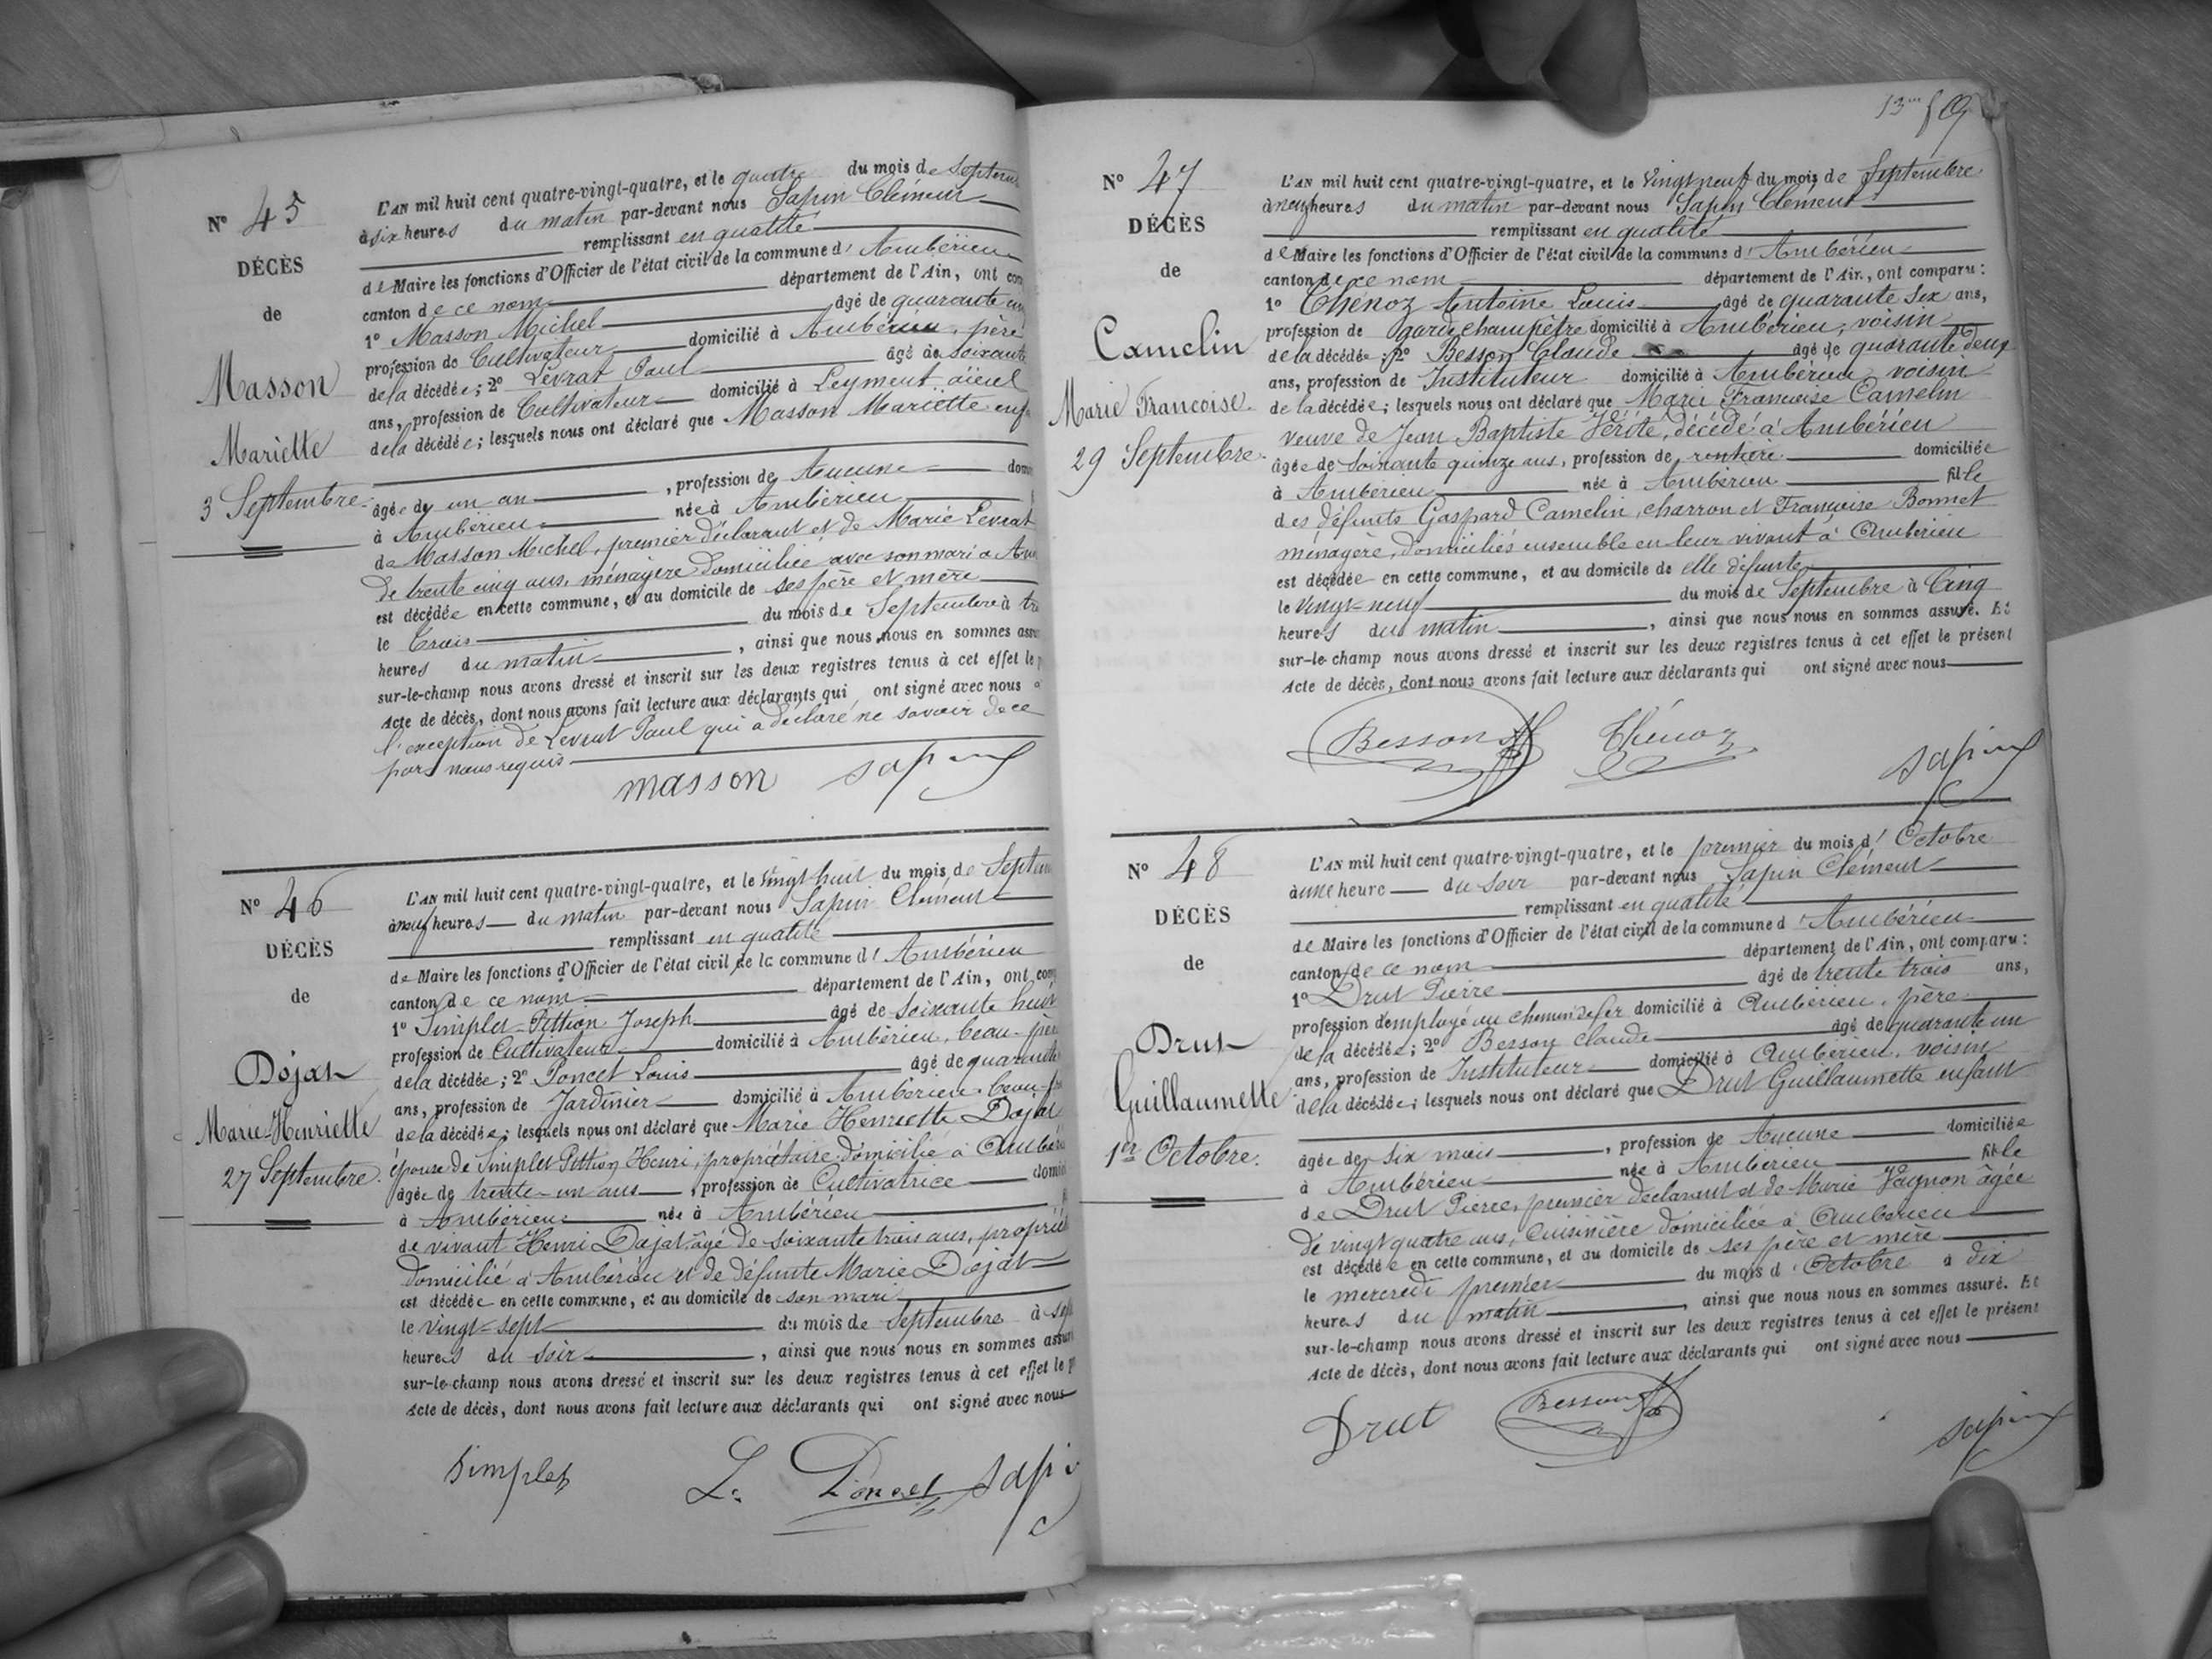 N° 45
DÉCÈS
de
Masson
Mariette
3 Septembre
L'AN mil huit cent quatre-vingt-quatre, et le quatre du mois de Septem
à six heures du matin par-devant nous Sapin Clément
remplissant en qualité
de Maire les fonctions d'Officier de l'état civil de la commune d' Ambérieu
canton de ce nom département de l'Ain, ont com
1° Masson Michel âgé de quarante
profession de Cultivateur domicilié à Ambérieu, père
de la décédée; 2° Levrat Paul âgé de soixante
ans, profession de Cultivateur domicilié à Leyment aïeul
de la décédée; lesquels nous ont déclaré que Masson Mariette enf
âgée de un an, profession de Aucune dom
à Ambérieu née à Ambérieu
de Masson Michel, premier déclarant et de Marie Levrat
de trente cinq ans, ménagère domiciliée avec son mari a Am
est décédée en cette commune, et au domicile de ses père et mère
le trois du mois de Septembre à
heures du matin, ainsi que nous nous en sommes assu
sur-le-champ nous avons dressé et inscrit sur les deux registres tenus à cet effet le p
Acte de décès, dont nous avons fait lecture aux déclarants qui ont signé avec nous
l'exception de Levrat Paul qui a déclaré ne savoir de ce
par nous requis
masson sapin
N° 46
DÉCÈS
de
Dojat
Marie-Henriette
27 Septembre.
L'AN mil huit cent quatre-vingt-quatre, et le Vingt huit du mois de Septem
à neuf heures du matin par-devant nous Sapin Clément
remplissant en qualité
de Maire les fonctions d'Officier de l'état civil de la commune d' Ambérieu
canton de ce nom département de l'Ain, ont com
1° Simplet-Pittion Joseph âgé de soixante huit
profession de Cultivateur domicilié à Ambérieu, beau-père
de la décédée; 2° Poncet Louis âgé de quarante
ans, profession de Jardinier domicilié à Ambérieu beau-
de la décédée; lesquels nous ont déclaré que Marie Henriette Dojat
épouse de Simplet Pittion Henri, propriétaire domicilié à Ambéri
âgée de trente-un ans, profession de Cultivatrice domi
à Ambérieu née à Ambérieu
de vivant Henri Dojat âgé de soixante trois ans, proprié
domicilié à Ambérieu et de défunte Marie Dojat
est décédée en cette commune, et au domicile de son mari
le vingt-sept du mois de Septembre à sep
heures du soir, ainsi que nous nous en sommes assu
sur-le-champ nous avons dressé et inscrit sur les deux registres tenus à cet effet le p
Acte de décès, dont nous avons fait lecture aux déclarants qui ont signé avec nous
Simplet L. Poncet sapi
N° 47
DÉCÈS
de
Camelin
Marie Francoise.
29 Septembre.
L'AN mil huit cent quatre-vingt-quatre, et le Vingt neuf du mois de Septembre
à neuf heures du matin par-devant nous Sapin Clément
remplissant en qualité
de Maire les fonctions d'Officier de l'état civil de la commune d' Ambérieu
canton de ce nom département de l'Ain, ont comparu:
1° Thénoz Antoine Louis âgé de quarante six ans,
profession de garde champêtre domicilié à Ambérieu, voisin
de la décédée; 2° Besson Claude âgé de quarante deux
ans, profession de Instituteur domicilié à Ambérieu voisin
de la décédée; lesquels nous ont déclaré que Marie Francoise Camelin
veuve de Jean Baptiste Vérité, décédé à Ambérieu
âgée de soixante quinze ans, profession de rentière domiciliée
à Ambérieu née à Ambérieu fille
des défunts Gaspard Camelin, charron et Françoise Bonnet
ménagère, domiciliés ensemble en leur vivant à Ambérieu
est décédée en cette commune, et au domicile de elle défunte
le vingt-neuf du mois de Septembre à Cinq
heures du matin, ainsi que nous nous en sommes assuré. Et
sur-le-champ nous avons dressé et inscrit sur les deux registres tenus à cet effet le présent
Acte de décès, dont nous avons fait lecture aux déclarants qui ont signé avec nous
Besson Thénoz sapin
N° 48
DÉCÈS
de
Drut
Guillaumette
1er Octobre.
L'AN mil huit cent quatre-vingt-quatre, et le premier du mois d' Octobre
à une heure du soir par-devant nous Sapin Clément
remplissant en qualité
de Maire les fonctions d'Officier de l'état civil de la commune d' Ambérieu
canton de ce nom département de l'Ain, ont comparu:
1° Drut Pierre âgé de trente trois ans,
profession d'employé au chemin de fer domicilié à Ambérieu, père
de la décédée; 2° Besson Claude âgé de quarante un
ans, profession de Instituteur domicilié à Ambérieu, voisin
de la décédée; lesquels nous ont déclaré que Drut Guillaumette enfant
âgée de six mois, profession de Aucune domiciliée
à Ambérieu née à Ambérieu fille
de Drut Pierre, premier déclarant et de Marie âgée
de vingt quatre ans, Cuisinière domiciliée à Ambérieu
est décédée en cette commune, et au domicile de ses père et mère
le mercredi premier du mois d' Octobre à dix
heures du matin, ainsi que nous nous en sommes assuré. Et
sur-le-champ nous avons dressé et inscrit sur les deux registres tenus à cet effet le présent
Acte de décès, dont nous avons fait lecture aux déclarants qui ont signé avec nous
Drut Besson sapin